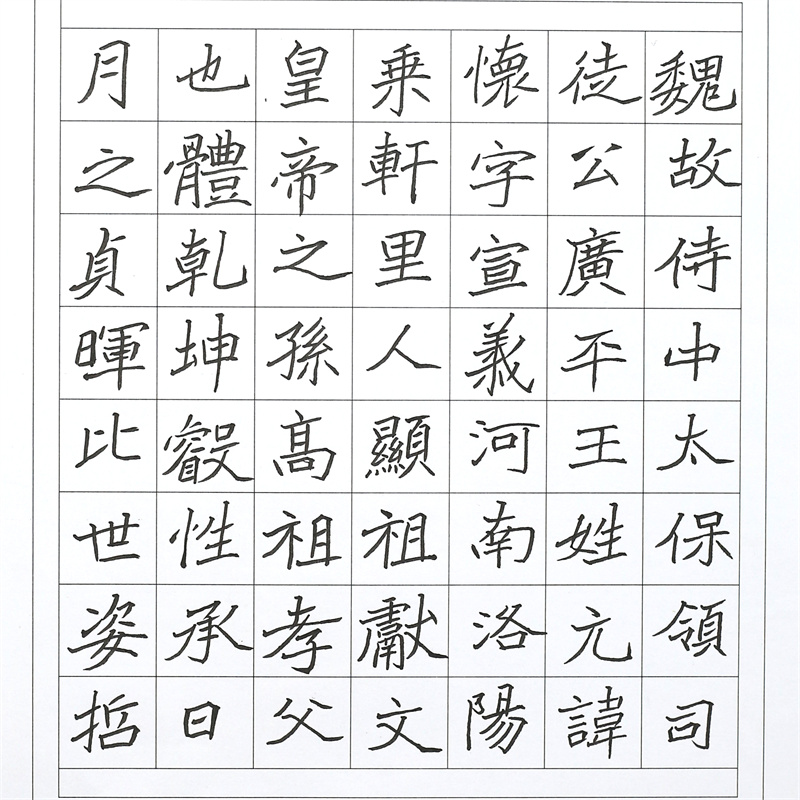 魏故侍中太保領司
徒公廣平王姓元諱
懷字宣義河南洛陽
乗軒里人顯祖獻文
皇帝之孫高祖孝父
也體乹坤叡性承日
月之貞暉比世姿哲